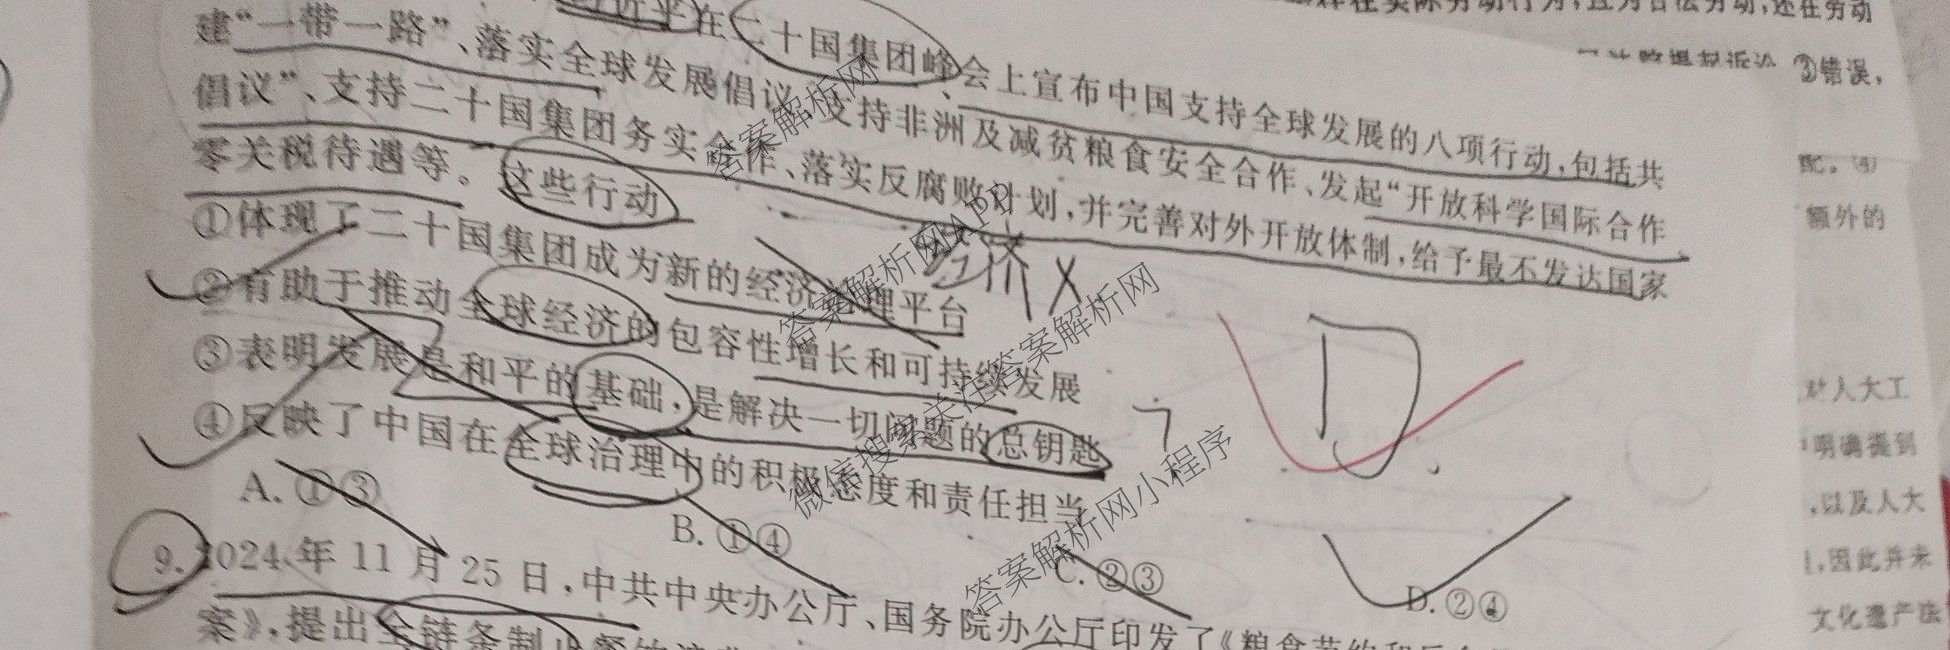 在二十国集团峰会上宣布中国支持全球发展的八项行动,包括共
建“一带一路”、落实全球发展倡议、支持非洲及减贫粮食安全合作、发起“开放科学国际合作
倡议”、支持二十国集团务实合作、落实反腐败计划,并完善对外开放体制,给予最不发达国家
零关税待遇等。这些行动
①体现了二十国集团成为新的经济治理平台
②有助于推动全球经济的包容性增长和可持续发展
③表明发展是和平的基础,是解决一切问题的总钥匙
④反映了中国在全球治理中的积极态度和责任担当
A. ①③
B. ①④
C. ②③
D. ②④
9. 2024 年 11 月 25 日,中共中央办公厅、国务院办公厅印发了《粮食节约和反
案》,提出全链条制止餐饮浪
经济 X
D
③错误,
额外的
对人大工
明确提到
,以及人大
,因此并未
文化遗产法
答案解析网
答案解析网APP
答案解析网
微信搜索 关注答案解析网
答案解析网小程序